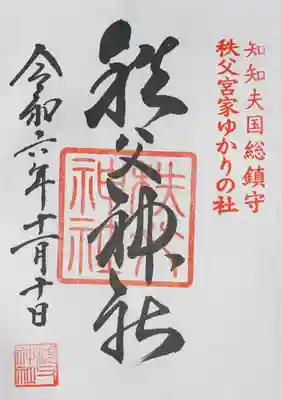 知知夫国総鎮守
秩父宮家ゆかりの社
秩父神社
秩父神社
令和六年十一月十日